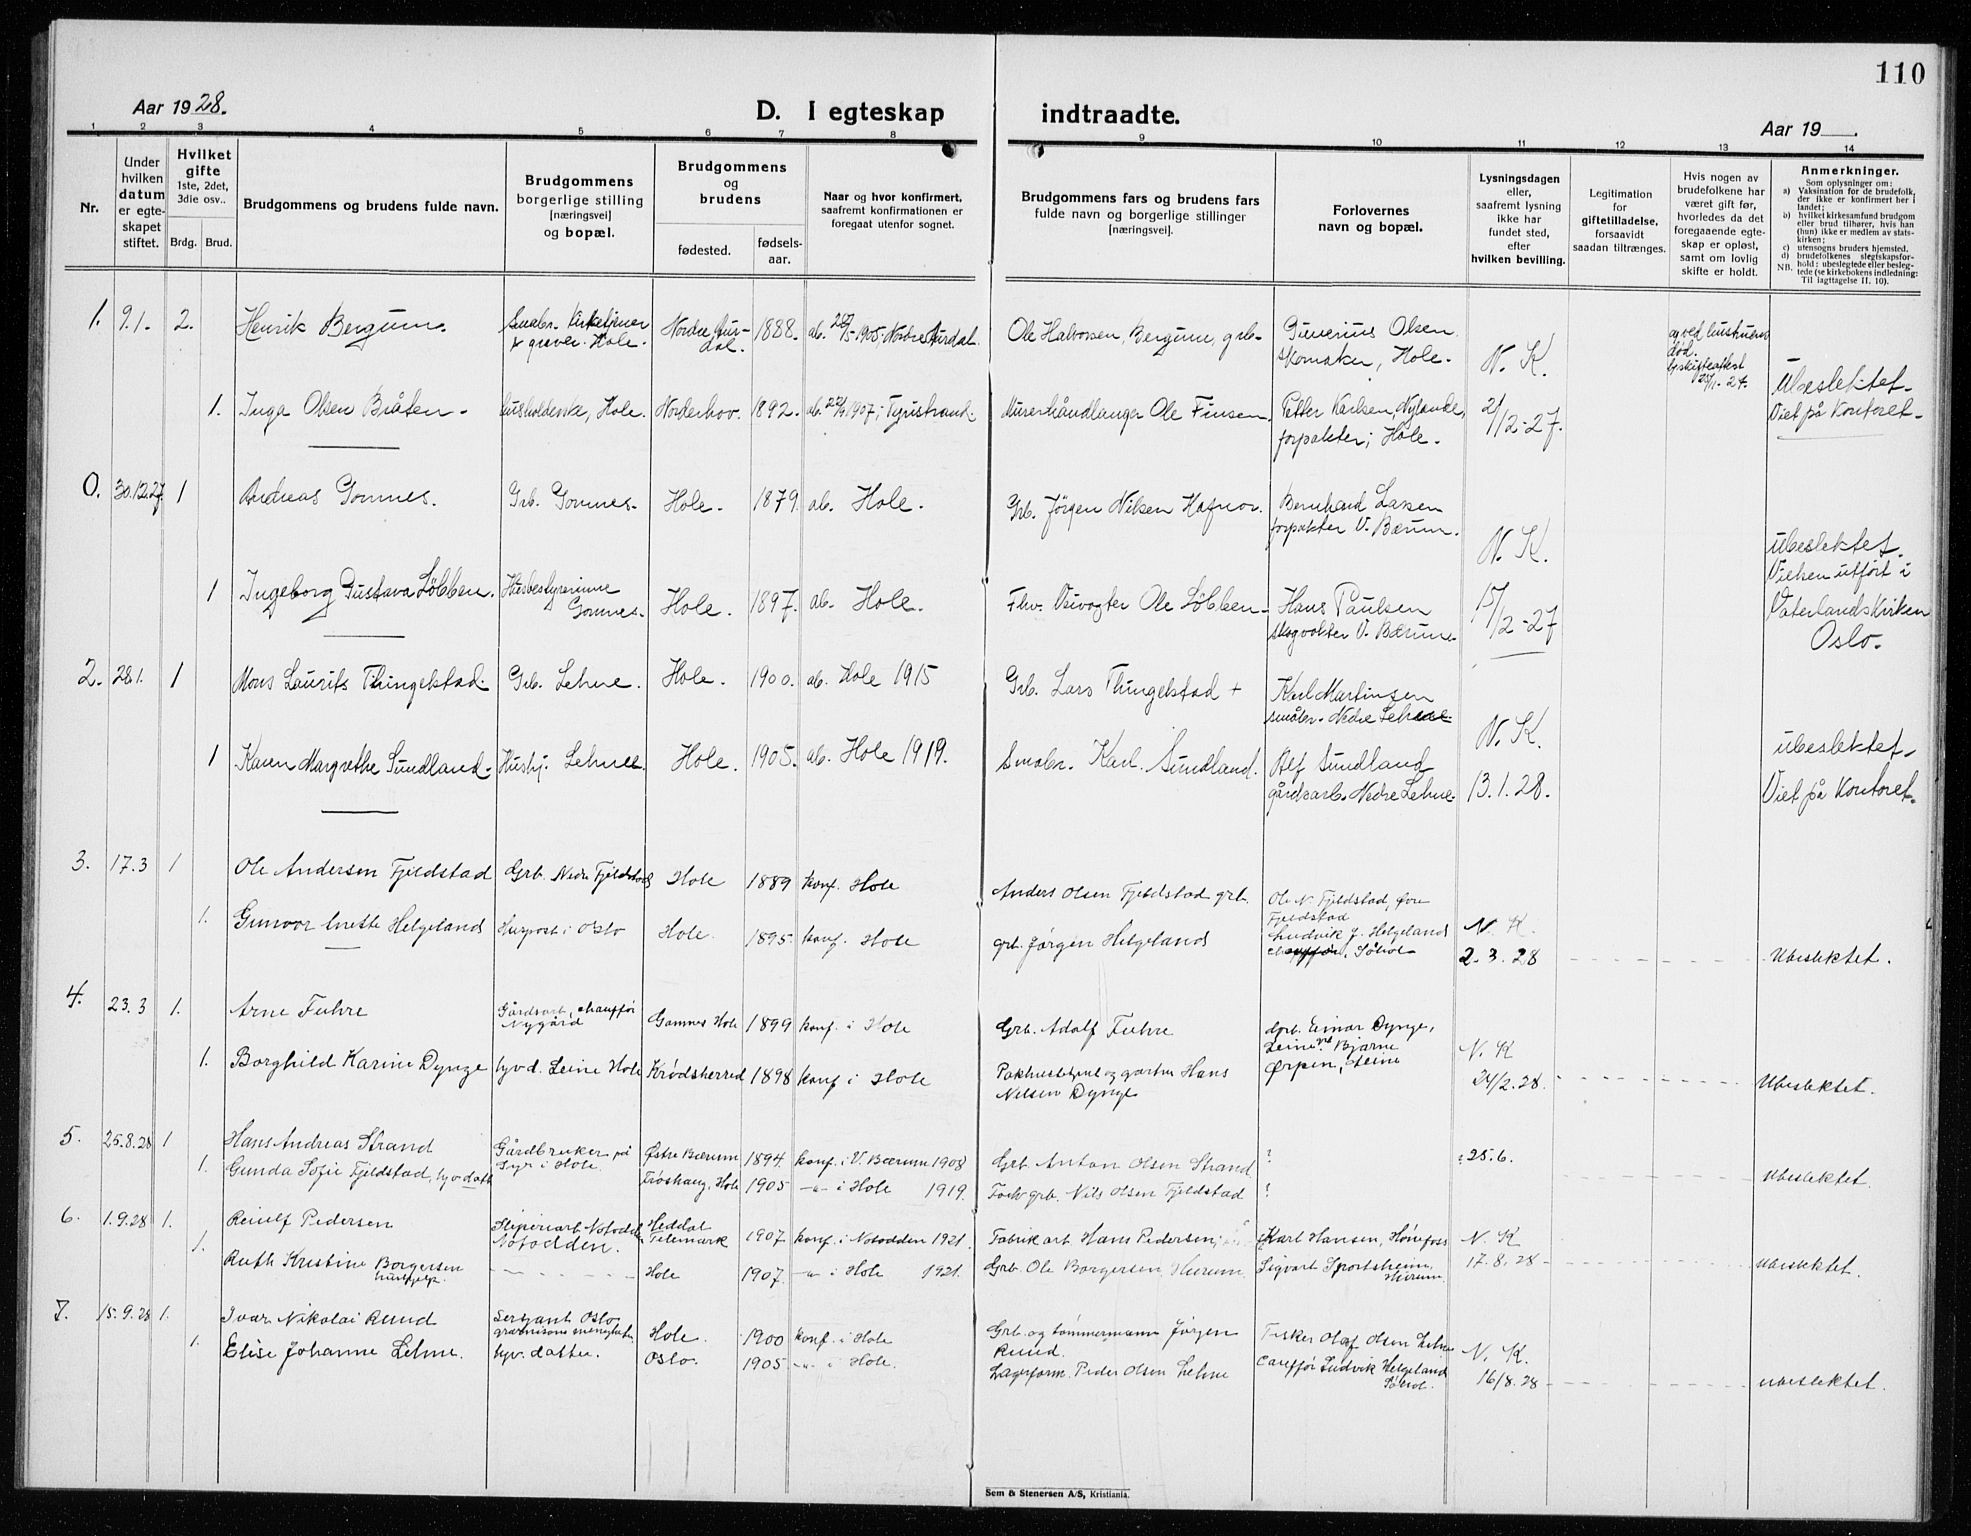 110
Aar 1928.
D. I egteskap indtraadte.
Aar 19 .
1 2 3 4 5 6 7 8 9 10 11 12 13 14
Nr.
Under hvilken datum er egteskapet stiftet.
Hvilket gifte 1ste, 2det, 3die osv..
Brdg. Brud.
Brudgommens og brudens fulde navn.
Brudgommens borgerlige stilling [næringsvei] og bopæl.
Brudgommens og brudens
fødested.
fødselsaar.
Naar og hvor konfirmert, saafremt konfirmationen er foregaat utenfor sognet.
Brudgommens fars og brudens fars fulde navn og borgerlige stillinger [næringsvei].
Forlovernes navn og bopæl.
Lysningsdagen eller, saafremt lysning ikke har fundet sted, efter hvilken bevilling.
Legitimation for giftetilladelse, forsaavidt saadan tiltrænges.
Hvis nogen av brudefolkene har været gift før, hvorledes da det foregaaende egteskap er opløst, samt om lovlig skifte er holdt.
Anmerkninger.
Som oplysninger om:
a) Vaksination for de brudefolk, der ikke er konfirmert her i landet;
b) hvilket kirkesamfund brudgom eller brud tilhører, hvis han (hun) ikke er medlem av statskirken;
c) utensogns bruders hjemsted.
d) brudefolkenes slegtskapsforhold: ubeslegtede eller beslegtede (se kirkebokens indledning: Til iagttagelse II. 10).
NB.
1. 9.1. 2. Henrik Bergum. Smabr. Kirketjener & graver. Hole. Nordre Aurdal. 1888. ab. 1905. Nordre Aurdal. Ole Halvorsen, Bergum, grb. Olsen skomaker, Hole. N. K. død.
1. Inga Olsen Bråten. Hole. Norderhov. 1892. ab. 1907, Tyristrand. Murerhåndlanger Ole Finsen. Petter Karlsen, forpakter, Hole. 2/12-27. Ubeslektet. Viet på Kontoret.
0. 30.12.27 1 Andreas Gomnes. Grb. Gomnes. Hole. 1879. ab. Hole. Grb. Jørgen Nilsen Hafnor. Bernhard Larsen forpakter V. Bærum. N. K.
1 Ingeborg Gustava Løbben. Husbestyrerinne Gomnes. Hole. 1897. ab. Hole. Fhv. Ole Løbben. Hans Paulsen skogvokter V. Bærum. 15/12-27 ubeslektet. Vielsen utført i Vaterlands Kirken Oslo.
2. 28.1. 1 Mons Laurits Thingelstad. Grb. Lehne. Hole. 1900. ab. Hole 1915 Grb. Lars Thingelstad + Karl Martinsen småbr. Nedre Lehne. N. K.
1 Karen Margrethe Sundland. Hushj. Lehne. Hole. 1905. ab. Hole 1919. Smabr. Karl Sundland. Alf Sundland gårdsarb. Nedre Lehne. 13.1.28. ubeslektet. Viet på Kontoret.
3. 17.3 1 Ole Andersen Fjeldstad Grb. Nedre Fjeldstad Hole 1889 konf. Hole Anders Olsen Fjeldstad grb. Ole N. Fjeldstad, Øvre Fjeldstad
1. Gunvor Anette Helgeland i Oslo Hole. 1895. konf. Hole grb. Jørgen Helgeland Ludvik J. Helgeland Søhol N. K. 2.3.28 Ubeslektet.
4. 23.3 1. Arne Fuhre Gårdsarb., chauffør Nygård Gomnes Hole 1899 konf. i Hole Grb. Adolf Fuhre Grb. Einar Dynge, Leine Bjarne
1. Borghild Karine Dynge hjv. d. Leine Hole Krødsherred 1898 konf. i Hole og gartner Hans Nilsen Dynge Ørpen, Leine N. K 24/2.28. Ubeslektet.
5. 25.8.28 1 Hans Andreas Strand Gårdbruker på i Hole. Østre Bærum 1894. konf. i V. Bærum 1908 Grb. Anton Olsen Strand ? ? 25.6.
1. Gunda Sofie Fjeldstad, hjv. datt. Hole 1905 -"- i Hole 1919. grb. Nils Olsen Fjeldstad ? Ubeslektet.
6. 1.9.28 1. Reidulf Pedersen Notodden. Heddal Telemark 1907. konf. i Notodden 1921. Fabrikarb. Hans Pedersen, Karl Hansen, Hønefoss N. K
1. Ruth Kristine Borgersen hushjelp. Hole 1907. -"- i Hole 1921. Grb. Ole Borgersen Hurum. Sigvart Sportsheim, Hurum. 17.8.28 Ubeslektet.
7. 15.9.28 1. Ivar Nikolai Ruud Sersjant Oslo Hole. 1900 konf. i Hole Grb. og tømmermann Jørgen Ruud. Olaf Olsen Lehne N. K.
1. Elise Johanne Lehne. hjv. datter. Oslo. 1905 -"- i Hole. Lagerform. Peder Olsen Lehne Ludvik Helgeland Søhol. 16/8.28 ubeslektet.
Sem & Stenersen A/S, Kristiania.